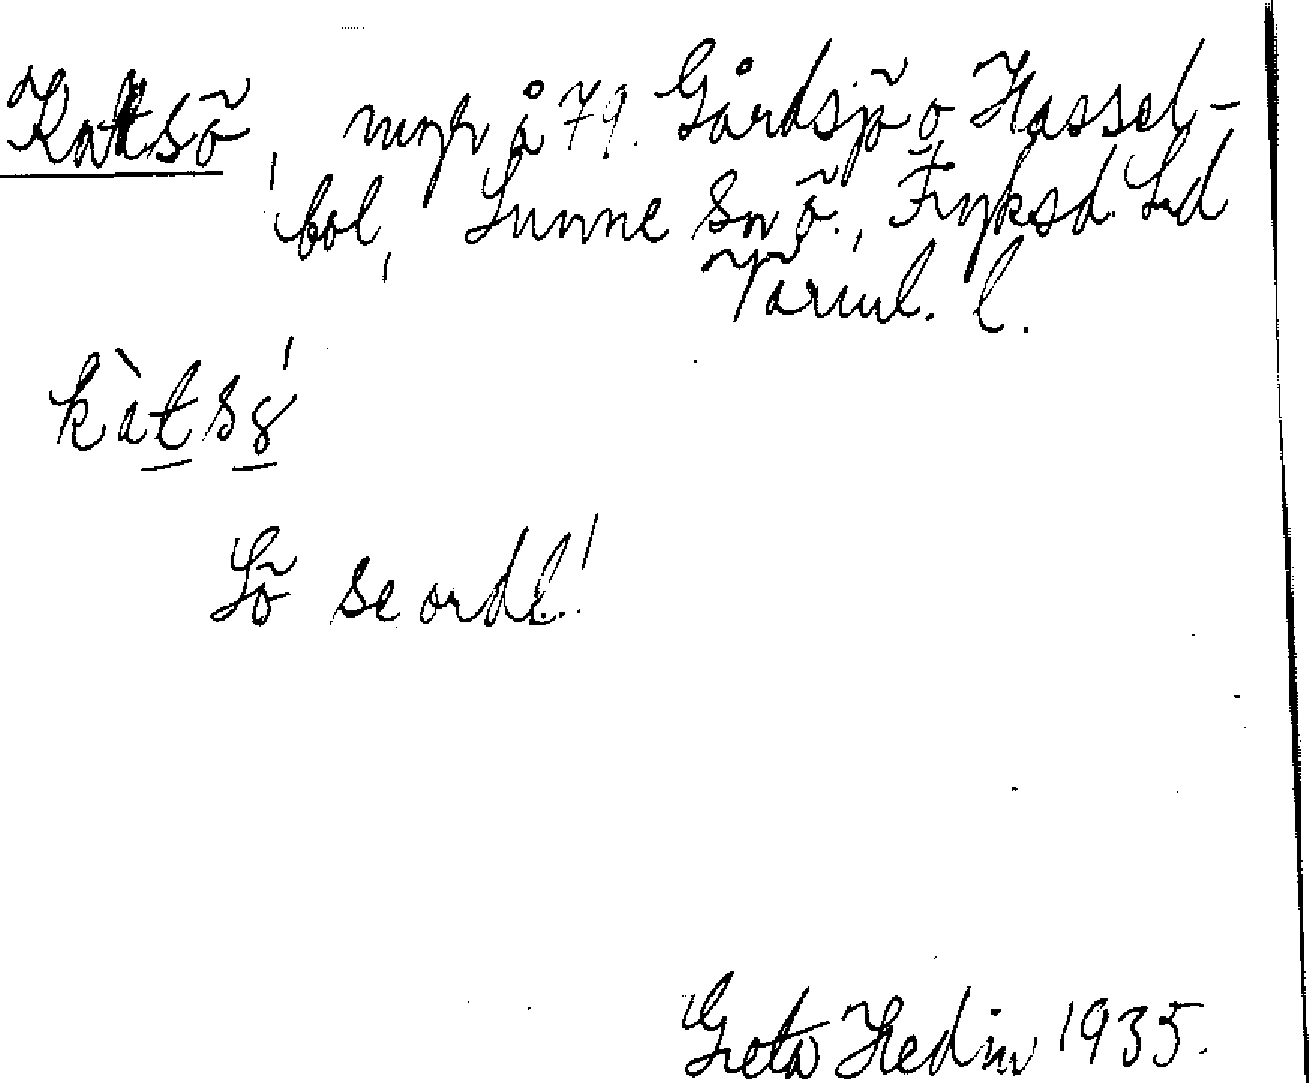 Kattsö, myr å 79. Gårdsjö o Hassel-
bol, Sunne Sn ö., Fryksd. Hd
Värml. l.
kàtsö́
Sö se ordl.!
Greta Hedin 1935.